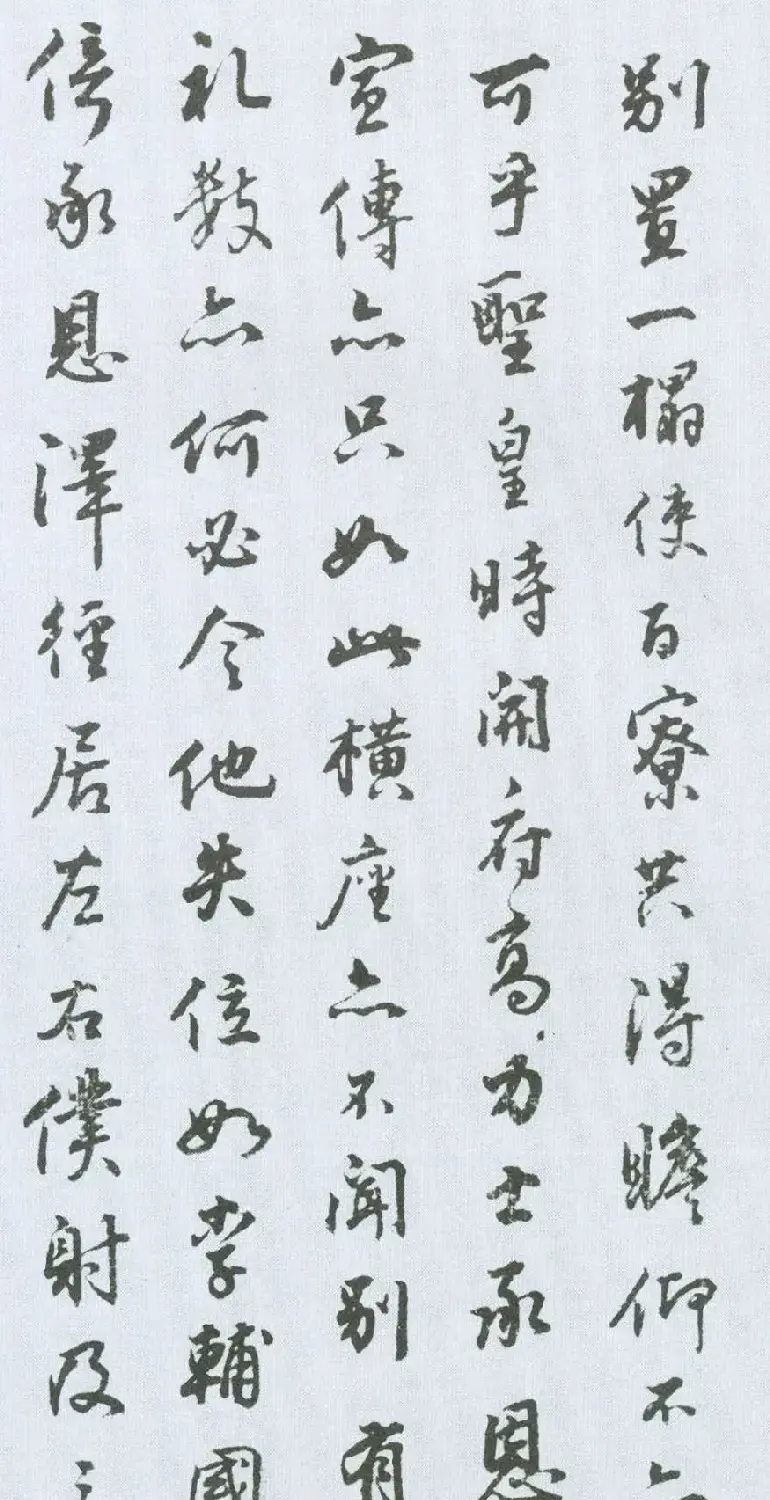 别置一榻使百寮共得瞻仰不亦
可乎聖皇時開府高力士承恩
宣傳亦只如此橫座亦不聞别有
礼數亦何必令他失位如李輔國
倚承恩澤徑居左右僕射及三